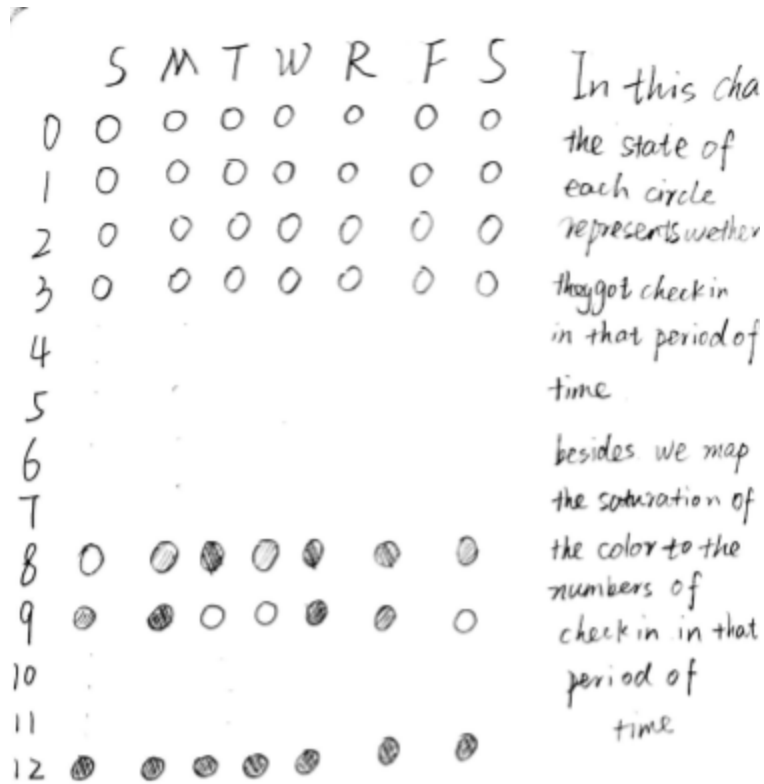 S M T W R F S
0
1
2
3
4
5
6
7
8
9
10
11
12
In this cha
the state of
each circle
represents wether
they got check in
in that period of
time
besides we map
the saturation of
the color to the
numbers of
check in in that
period of
time